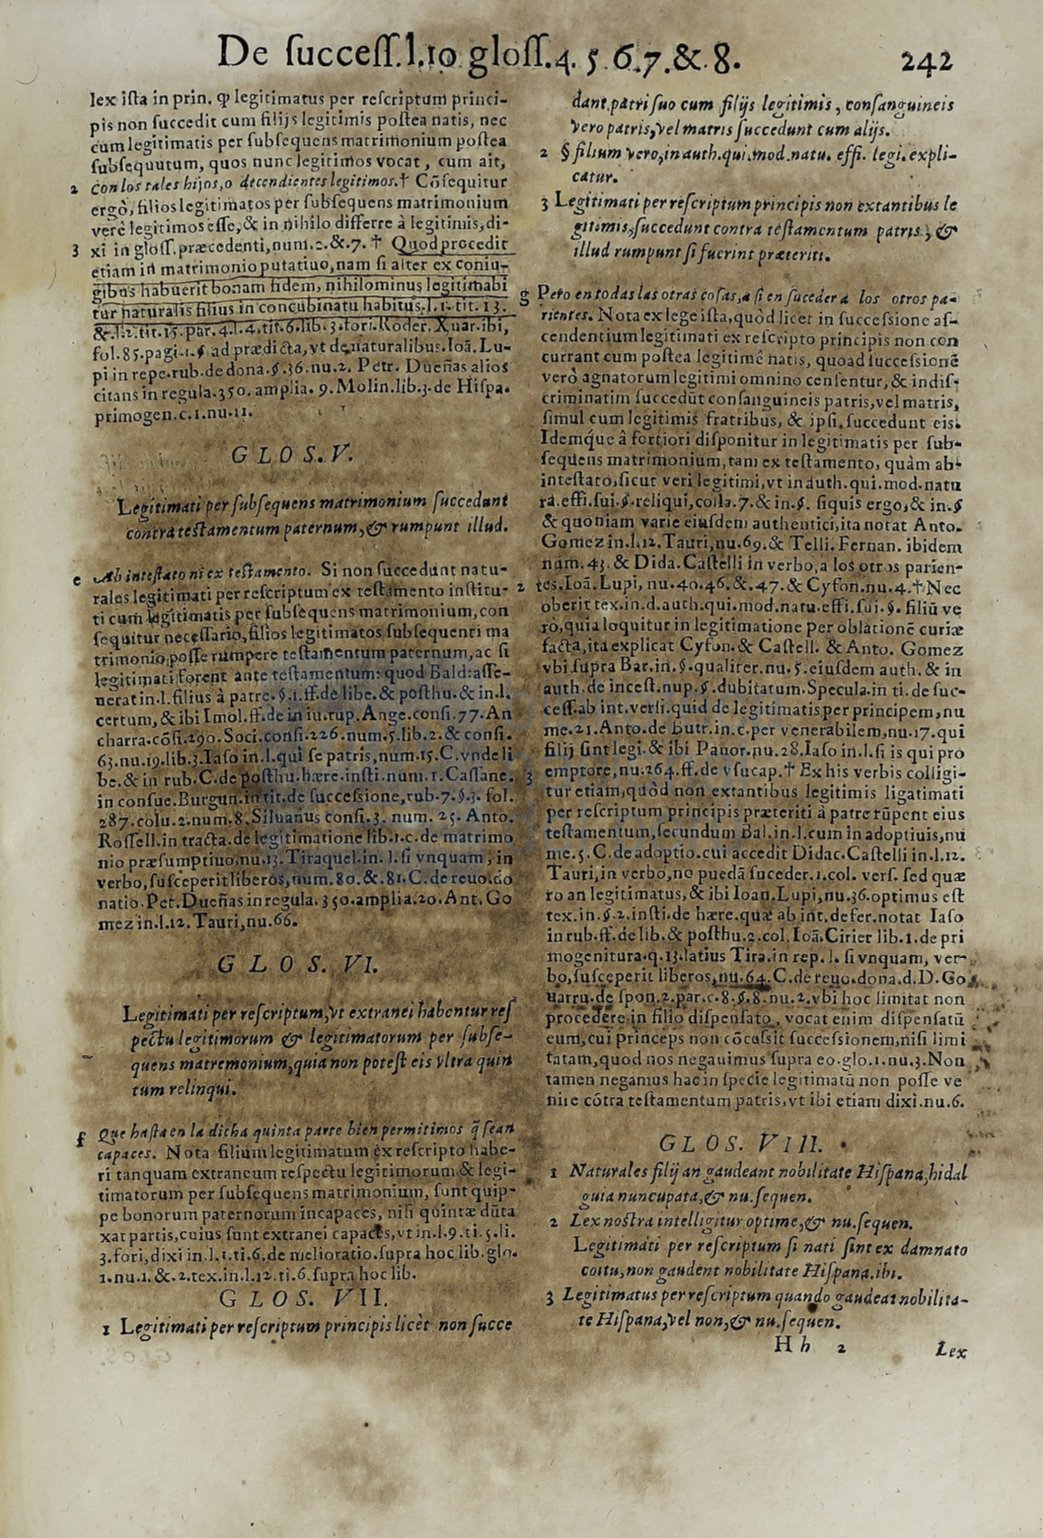 De ſucceſſ.l.10 gloſſ.4. 5.6.7.&.8.
242
lex iſta in prin. ꝙ legitimatus per reſcriptum princi-
pis non ſuccedit cum filijs legitimis poſtea natis, nec
cum legitimatis per ſubſequens matrimonium poſtea
ſubſequutum, quos nunc legitimos vocat, cum ait,
2 con los tales hijos, o decendientes legitimos.† Cõſequitur
ergò, filios legitimatos per ſubſequens matrimonium
verè legitimos eſſe, & in nihilo differre à legitimis, di-
3 xi in gloſſ. præcedenti, num.2.&.7. † Quod procedit
etiam in matrimonio putatiuo, nam ſi alter ex coniu-
gibus habuerit bonam fidem, nihilominus legitimabi
tur naturalis filius in concubinatu habitus, l.1. tit. 13.
&.l.2.tit.15.par.4.l.4.tit.6.lib.3.fori.Roder.Xuar.ibi,
fol.85.pagi.1.§ ad prædicta, vt de naturalibus.Ioã. Lu-
pi in repe.rub.de dona.§.36.nu.2. Petr. Dueñas alios
citans in regula.350. amplia. 9. Molin.lib.3.de Hiſpa.
primogen.c.1.nu.11.
GLOS. V.
Legitimati per ſubſequens matrimonium ſuccedunt
contra teſtamentum paternum, & rumpunt illud.
e Ab inteſtato ni ex teſtamento. Si non ſuccedunt natu-
rales legitimati per reſcriptum ex teſtamento inſtitu-
ti cum legitimatis per ſubſequens matrimonium, con
ſequitur neceſſario, filios legitimatos ſubſequenti ma
trimonio, poſſe rumpere teſtamentum paternum, ac ſi
legitimati forent ante teſtamentum: quod Bald: aſſe-
uerat in.l.filius à patre.§.1.ff.de libe.& poſthu.& in.l.
certum, & ibi Imol.ff.de in iu.rup. Ange.conſi.77. An
charra.cõſi.290. Soci.conſi.226.num.5.lib.2.& conſi.
63.nu.19.lib.3.Iaſo in.l.qui ſe patris, num.15.C.vnde li
be.& in rub.C.de poſthu.hære.inſti.num.1.Caſſane.
in conſue.Burgun.in tit.de ſucceſsione, rub.7.§.3. fol.
287.colu.2.num.8.Siluanus conſi.3. num. 25. Anto.
Roſſell.in tracta.de legitimatione lib.1.c.de matrimo
nio præſumptiuo, nu.13.Tiraquel.in. l. ſi vnquam, in
verbo, ſuſceperit liberos, num.80.&.81.C.de reuo.do
natio.Pet. Dueñas in regula.350.amplia.20. Ant. Go
mez in.l.12.Tauri, nu.66.
GLOS. VI.
Legitimati per reſcriptum, vt extranei habentur reſ
pectu legitimorum & legitimatorum per ſubſe-
quens matremonium, quia non poteſt eis vltra quin
tum relinqui.
f Que haſta en la dicha quinta parte bien permitimos q̃ ſean
capaces. Nota filium legitimatum ex reſcripto habe-
ri tanquam extraneum reſpectu legitimorum & legi-
timatorum per ſubſequens matrimonium, ſunt quip-
pe bonorum paternorum incapaces, niſi quintæ dũta
xat partis, cuius ſunt extranei capaces, vt in.l.9.ti.5.li.
3.fori, dixi in.l.1.ti.6.de melioratio.ſupra hoc lib.glo.
1.nu.1.&.2.tex.in.l.12.ti.6.ſupra hoc lib.
GLOS. VII.
1 Legitimati per reſcriptum principis licèt non ſucce
dant patri ſuo cum filijs legitimis, conſanguineis
vero patris, vel matris ſuccedunt cum alijs.
2 § filium vero, in auth.qui.mod.natu. effi. legi. expli-
catur.
3 Legitimati per reſcriptum principis non extantibus le
gitimis, ſuccedunt contra teſtamentum patris, &
illud rumpunt ſi fuerint præteriti.
g Pero en todas las otras coſas, aſi en ſuceder a los otros pa-
rientes. Nota ex lege iſta, quòd licet in ſucceſsione aſ-
cendentium legitimati ex reſcripto principis non con
currant cum poſtea legitimè natis, quoad ſucceſsionẽ
verò agnatorum legitimi omnino cenſentur, & indiſ-
criminatim ſuccedũt conſanguineis patris, vel matris,
ſimul cum legitimis fratribus, & ipſi ſuccedunt eis.
Idemque à fortiori diſponitur in legitimatis per ſub-
ſequens matrimonium, tam ex teſtamento, quàm ab-
inteſtato, ſicut veri legitimi, vt in auth.qui.mod.natu
ra.effi.ſui.§.reliqui, colla.7.& in.§. ſiquis ergo, & in.§
& quoniam varie eiuſdem authentici, ita notat Anto.
Gomez in.l.12.Tauri, nu.69.& Telli. Fernan. ibidem
num.43.& Dida.Caſtelli in verbo, a los otros parien-
2 tes. Ioã. Lupi, nu.40.46.&.47.& Cyfon.nu.4.† Nec
oberit tex.in.d.auth.qui.mod.natu.effi.ſui.§. filiũ ve
ro, quia loquitur in legitimatione per oblationẽ curiæ
facta, ita explicat Cyfon.& Caſtell. & Anto. Gomez
vbi ſupra Bar.in.§.qualiter.nu.5.eiuſdem auth. & in
auth.de inceſt.nup.§.dubitatum.Specula.in ti.de ſuc-
ceſſ.ab int.verſi.quid de legitimatis per principem, nu
me.21.Anto.de Butr.in.c.per venerabilem, nu.17.qui
filij ſint legi.& ibi Panor.nu.28.Iaſo in.l.ſi is qui pro
3 emptore, nu.264.ff.de vſucap.† Ex his verbis colligi-
tur etiam, quòd non extantibus legitimis ligatimati
per reſcriptum principis præteriti à patre rũpent eius
teſtamentum, ſecundum Bal.in.l.cum in adoptiuis, nu
me.5.C.de adoptio.cui accedit Didac.Caſtelli in.l.12.
Tauri, in verbo, no puedã ſuceder.1.col. verſ. ſed quæ
ro an legitimatus, & ibi Ioan.Lupi, nu.36.optimus eſt
tex.in.§.2.inſti.de hære.quæ ab int.defer.notat Iaſo
in rub.ff.de lib.& poſthu.2.col.Ioã.Cirier lib.1.de pri
mogenitura.q.13.latius Tira.in rep.l. ſi vnquam, ver-
bo, ſuſceperit liberos, nu.64.C.de reuo.dona.d.D.Go
uarru.de ſpon.2.par.c.8.§.8.nu.2.vbi hoc limitat non
procedere in filio diſpenſato, vocat enim diſpenſatũ
eum, cui princeps non cõceſsit ſucceſsionem, niſi limi
tatam, quod nos negauimus ſupra eo.glo.1.nu.3. Non
tamen negamus hac in ſpecie legitimatũ non poſſe ve
nire cõtra teſtamentum patris, vt ibi etiam dixi.nu.6.
GLOS. VIII.
1 Naturales filij an gaudeant nobilitate Hiſpana, hidal
guia nuncupata, & nu.ſequen.
2 Lex noſtra intelligitur optime, & nu.ſequen.
Legitimati per reſcriptum ſi nati ſint ex damnato
coitu, non gaudent nobilitate Hiſpana.ibi.
3 Legitimatus per reſcriptum quando gaudeat nobilita-
te Hiſpana, vel non, & nu.ſequen.
Hh 2
Lex